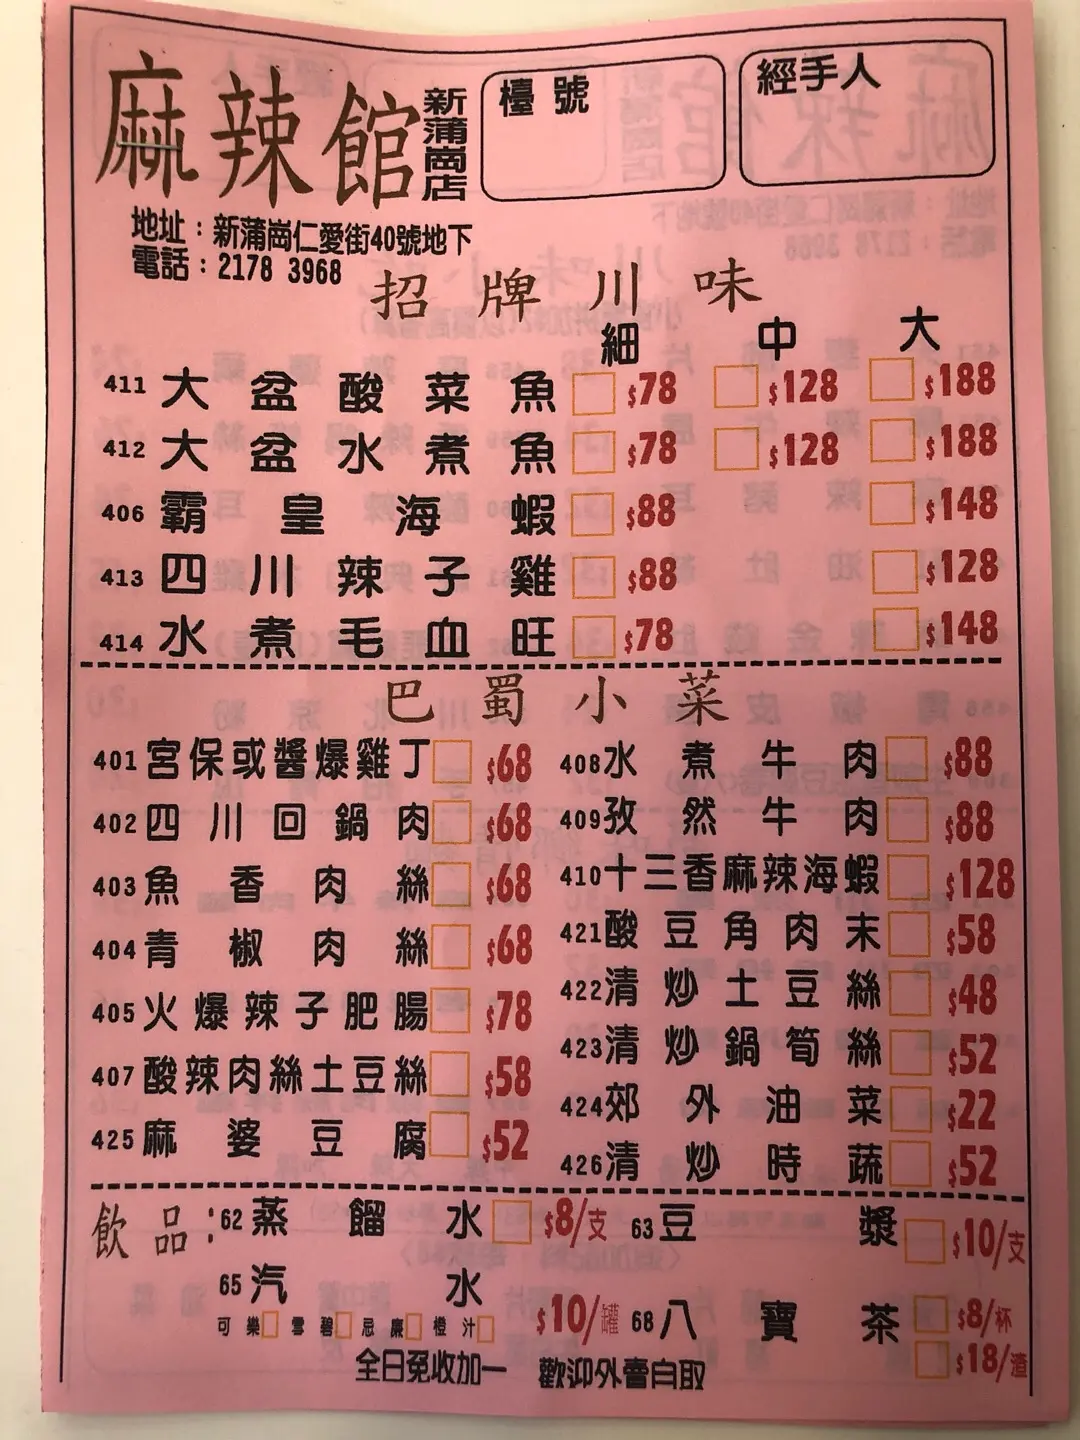 麻辣館 新蒲崗店
檯號
經手人
地址：新蒲崗仁愛街40號地下
電話：2178 3968
招牌川味
細 中 大
411 大盆酸菜魚 $78 $128 $188
412 大盆水煮魚 $78 $128 $188
406 霸皇海蝦 $88 $148
413 四川辣子雞 $88 $128
414 水煮毛血旺 $78 $148
巴蜀小菜
401 宮保或醬爆雞丁 $68
402 四川回鍋肉 $68
403 魚香肉絲 $68
404 青椒肉絲 $68
405 火爆辣子肥腸 $78
407 酸辣肉絲土豆絲 $58
425 麻婆豆腐 $52
408 水煮牛肉 $88
409 孜然牛肉 $88
410 十三香麻辣海蝦 $128
421 酸豆角肉末 $58
422 清炒土豆絲 $48
423 清炒鍋筍絲 $52
424 郊外油菜 $22
426 清炒時蔬 $52
飲品：
62 蒸餾水 $8/支
63 豆漿 $10/支
65 汽水 $10/罐
可樂 雪碧 忌廉 橙汁
68 八寶茶 $8/杯
$18/渣
全日免收加一 歡迎外賣自取